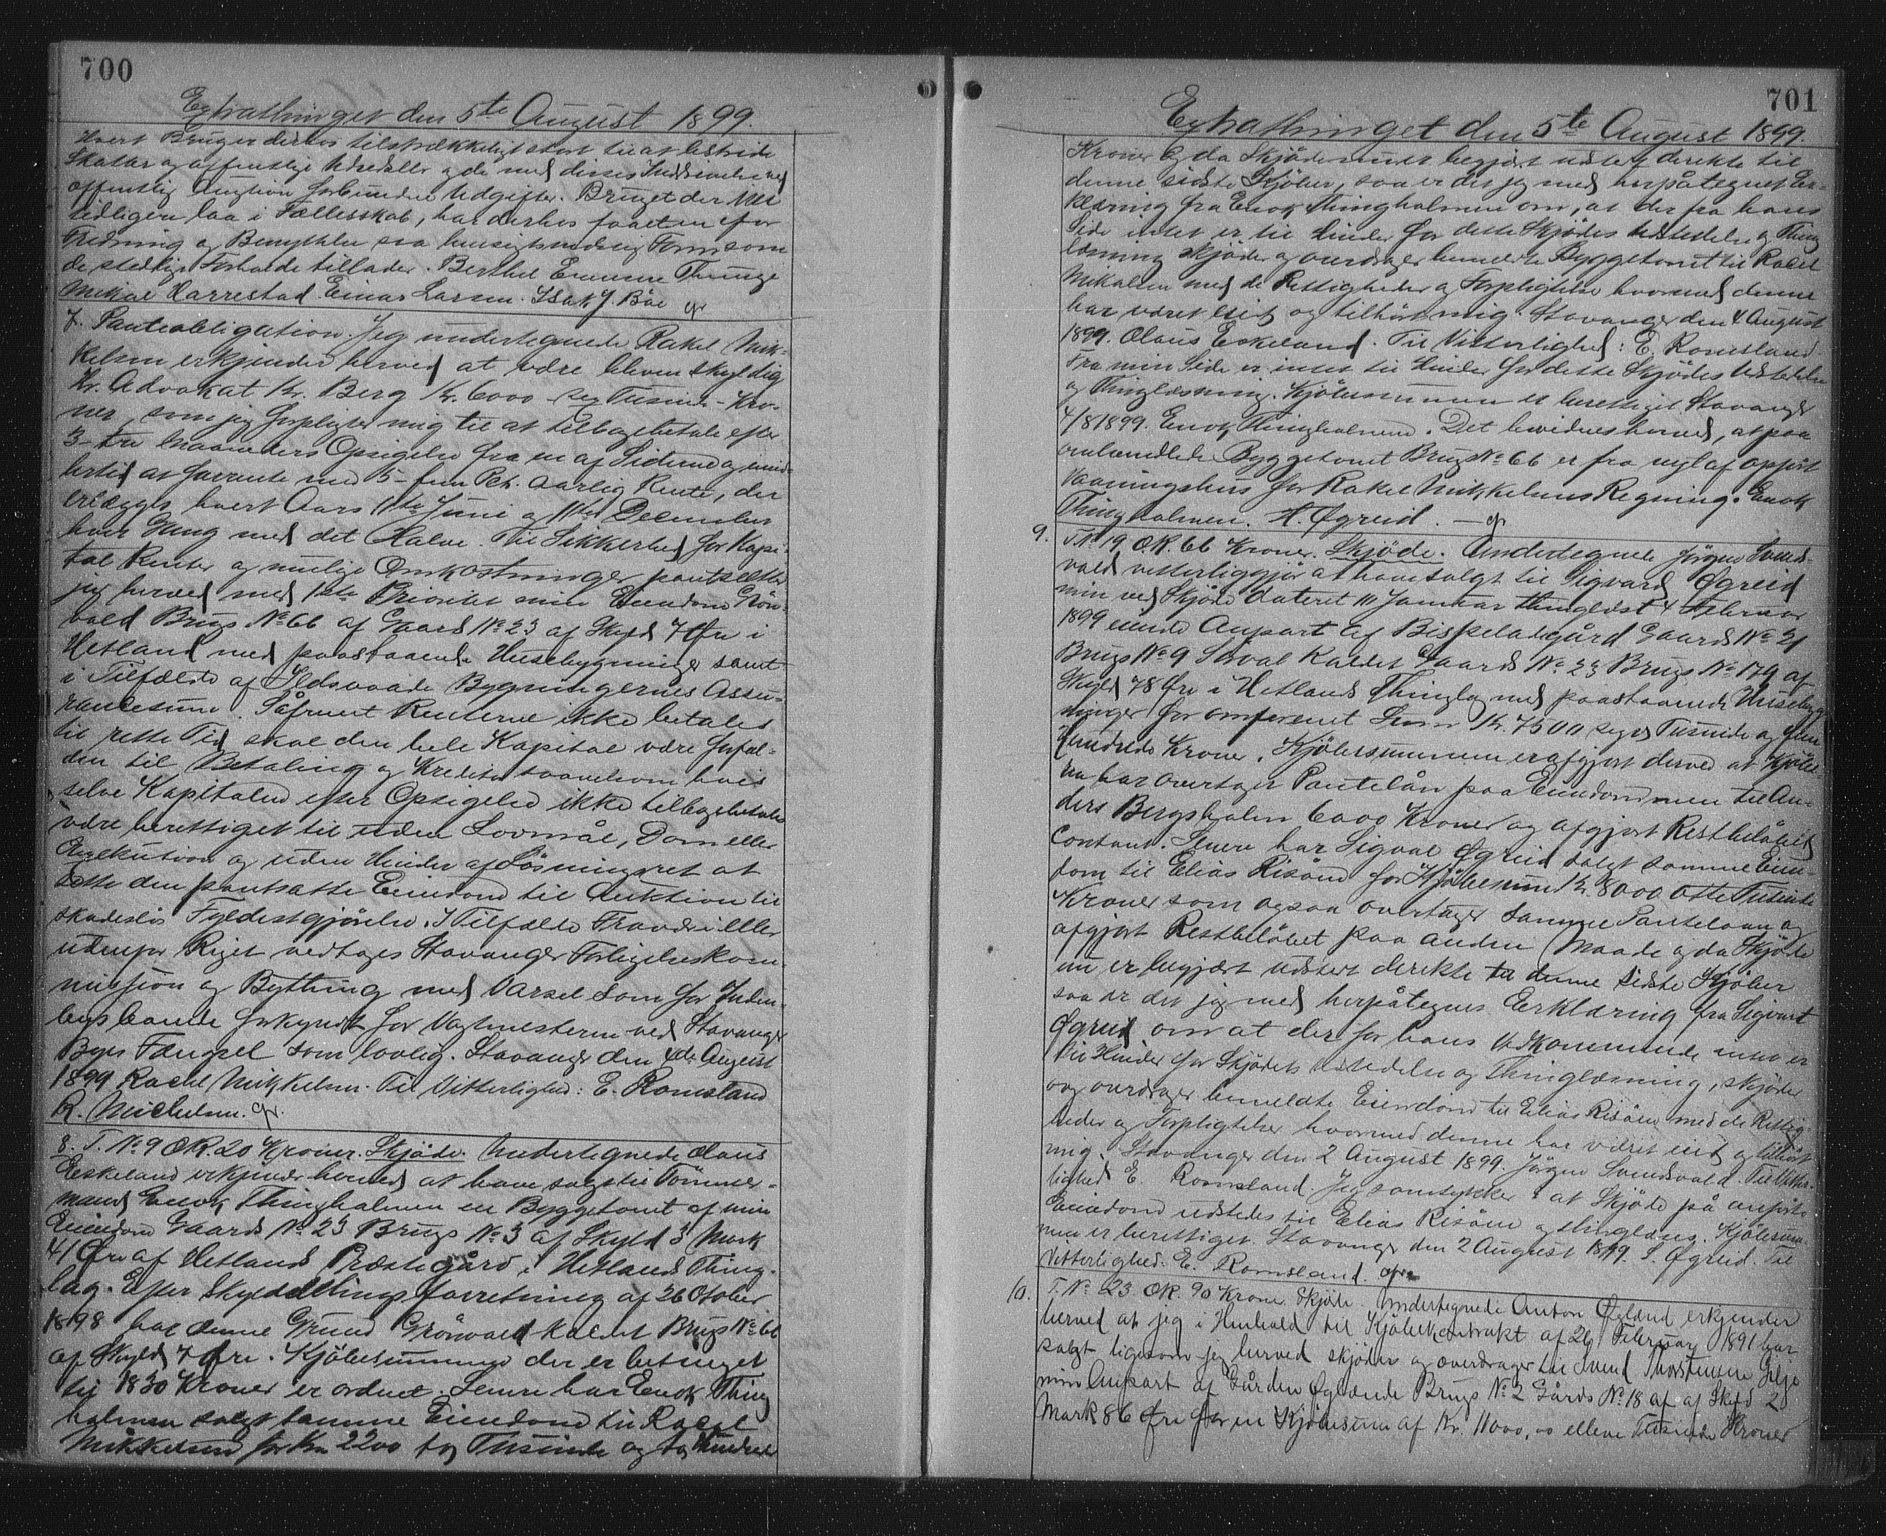 700
Extrathinget den 5te August 1899.
hvert Brug er derhos tilstrækkeligt stort til at bestride
Skatter og offentlige Udredsler og de med disses Inddrivelse ved
offentlig Auktion forbundne Udgifter. Bruget der
tidligere laa i Fællesskab, har derhos faaet en for
Fredning og Benyttelse saa hensigtsmæssig Form som
de stedlige Forholde tillader. Berthel Emersen Thinge
Mikal Harrestad Einar Larsen. Isak J. Böe gr
7. Panteobligation. Jeg undertegnede Rakel Mik-
kelsen erkjender herved at være bleven skyldig
Hr. Advokat Kr. Berg Kr. 6000 sex Tusinde Kro-
ner, som jeg forpligter mig til at tilbagebetale efter
3-tre Maaneders Opsigelse fra en af Siderne og imid-
lertid at forrente med 5- fem Pct. aarlig Rente, der
erlægges hvert Aars 11te Juni og 11te December
hver Gang med det Halve. Til Sikkerhed for Kapi-
tal Renter og mulige Omkostninger pantsætter
jeg herved med 1ste Prioritet min Eiendom Grön-
vold Brugs No 66 af Gaards No 23 af Skyld 7 Øre i
Hetland med paastaaende Husebygninger samt
i Tilfælde af Ildsvaade Bygningernes Assu-
rancesum. Såfremt Renterne ikke betales
til rette Tid skal den hele Kapital være forfal-
den til Betaling og Kreditor saavelsom hvis
selve Kapitalen efter Opsigelse ikke tilbagebetales
være berettiget til uden Lovmål, Dom eller
Exekution og uden Hinder af Løsningsret at
sætte den pantsatte Eiendom til Auktion til
skadesløs Fyldestgjørelse. I Tilfælde Fravær i eller
udenfor Riget vedtages Stavanger Forligelseskom-
mission og Bything med Varsel som for Inden-
bysboende forkyndt for Vagtmesteren ved Stavanger
Byes Fængsel som lovlig. Stavanger den 4de August
1899 Rachel Mikkelsen. Til Vitterlighed: E. Romsland
R. Michelsen. gr.
8. T. No 9 OK. 20 Kroner. Skjöde. Undertegnede Olaus
Eskeland erkjender herved at have solgt til Tömmer-
mand Enok Thingholmen en Byggetomt af min
Eiendom Gaards No 23 Brugs No 3 af Skyld 3 Mark
41 Øre af Hetlands Præstegård i Hetlands Thing-
lag. Efter Skylddelingsforretning af 26 Otober
1898 har denne Grund Grönvold kaldet Brugs No 66
af Skyld 7 Øre. Kjöbesummen der er betinget
til 1830 Kroner er ordnet. Senere har Enok Thing
holmen solgt samme Eiendom til Rachel
Mikkelsen for Kr 2200 to Tusinde og to Hundrede
701
Extrathinget den 5te August 1899.
Kroner og da Skjöde nu er begjært udstedt direkte til
denne sidste Kjöber, saa er det jeg med herpåtegnet Er-
klæring fra Enok Thingholmen om, at der fra hans
Side intet er til Hinder for dette Skjödes Udstedelse og Thing
læsning skjöder og overdrager bemeldte Byggetomt til Rakel
Mikalsen med de Rettigheder og Forpligtelser hvormed denne
har været eiet og tilhört mig. Stavanger den 4 August
1899. Olaus Eskeland. Til Vitterlighed: E. Romsland.
Fra min Side er intet til Hinder for dette Skjödes Udstedelse
og Thinglæsning. Kjöbesummen er berettiget. Stavanger
4/8 1899. Enok Thingholmen. Det bevidnes herved, at paa
omhandlede Byggetomt Brugs No 66 er fra nyt af opfört
Vaaningshus for Rakel Mikkelsens Regning. Enok
Thingholmen. A. Øgreid. gr
9. T. No 19 OK. 66 Kroner. Skjöde. Undertegnede Jörgen Svends-
vold vitterliggjör at have solgt til Sigvard Øgreid
min ved Skjöde dateret 11 Januar thinglæst 4 Februar
1899 eiende Anpart af Bispeladegård Gaards No 21
Brugs No 9 Solvol kaldet Gaards No 23 Brugs No 179 af
Skyld 78 Øre i Hetlands Thinglag med paastaaende Husebyg-
ninger for omforenet Sum Kr. 7500 syv Tusinde og fem
Hundrede Kroner. Kjöbesummen er afgjort derved at Kjöbe-
ren har overtaget Pantelån paa Eiendommen til An-
ders Bergsholm 6000 Kroner og afgjort Restbelöbet
Contant. Senere har Sigval Øgreid solgt samme Eien-
dom til Elias Risöen for Kjöbesum Kr. 8000 otte Tusinde
Kroner som ogsaa overtager samme Pantelaan og
afgjört Restbelöbet paa anden Maade og da Skjöde
nu er begjært udstedt direkte til denne sidste Kjöber
saa er det jeg med herpåtegnet Erklæring fra Sigvart
Øgreid om at der for hans Vedkommende intet er
til Hinder for Skjödets Udstedelse og Thinglæsning, skjöder
og overdrager bemeldte Eiendom til Elias Risöen med de Rettig-
heder og Forpligtelser hvormed denne har været eiet og tilhört
mig. Stavanger den 2 August 1899. Jörgen Svendsvold. Til Vitter-
lighed E. Romsland. Jeg samtykker i at Skjöde på anförte
Eiendom udstedes til Elias Risöen og thinglæses. Kjöbesum-
men er berettiget. Stavanger den 2 August 1899. S. Øgreid. Til
Vitterlighed. E. Romsland. gr
10. T. No 23 OK. 90 Kroner. Skjöde. Undertegnede Anton erkjender
herved at jeg i Henhold til Kjöbekontrakt af 26 Februar 1891 har
solgt ligesom jeg herved skjöder og overdrager til Svend Thorstensen Gilje
min Anpart af Gården Øglænde Brugs No 2 Gårds No 18 af af Skyld 2
Mark 86 Øre for en Kjöbesum af Kr. 11000,00 elleve Tusinde Kroner